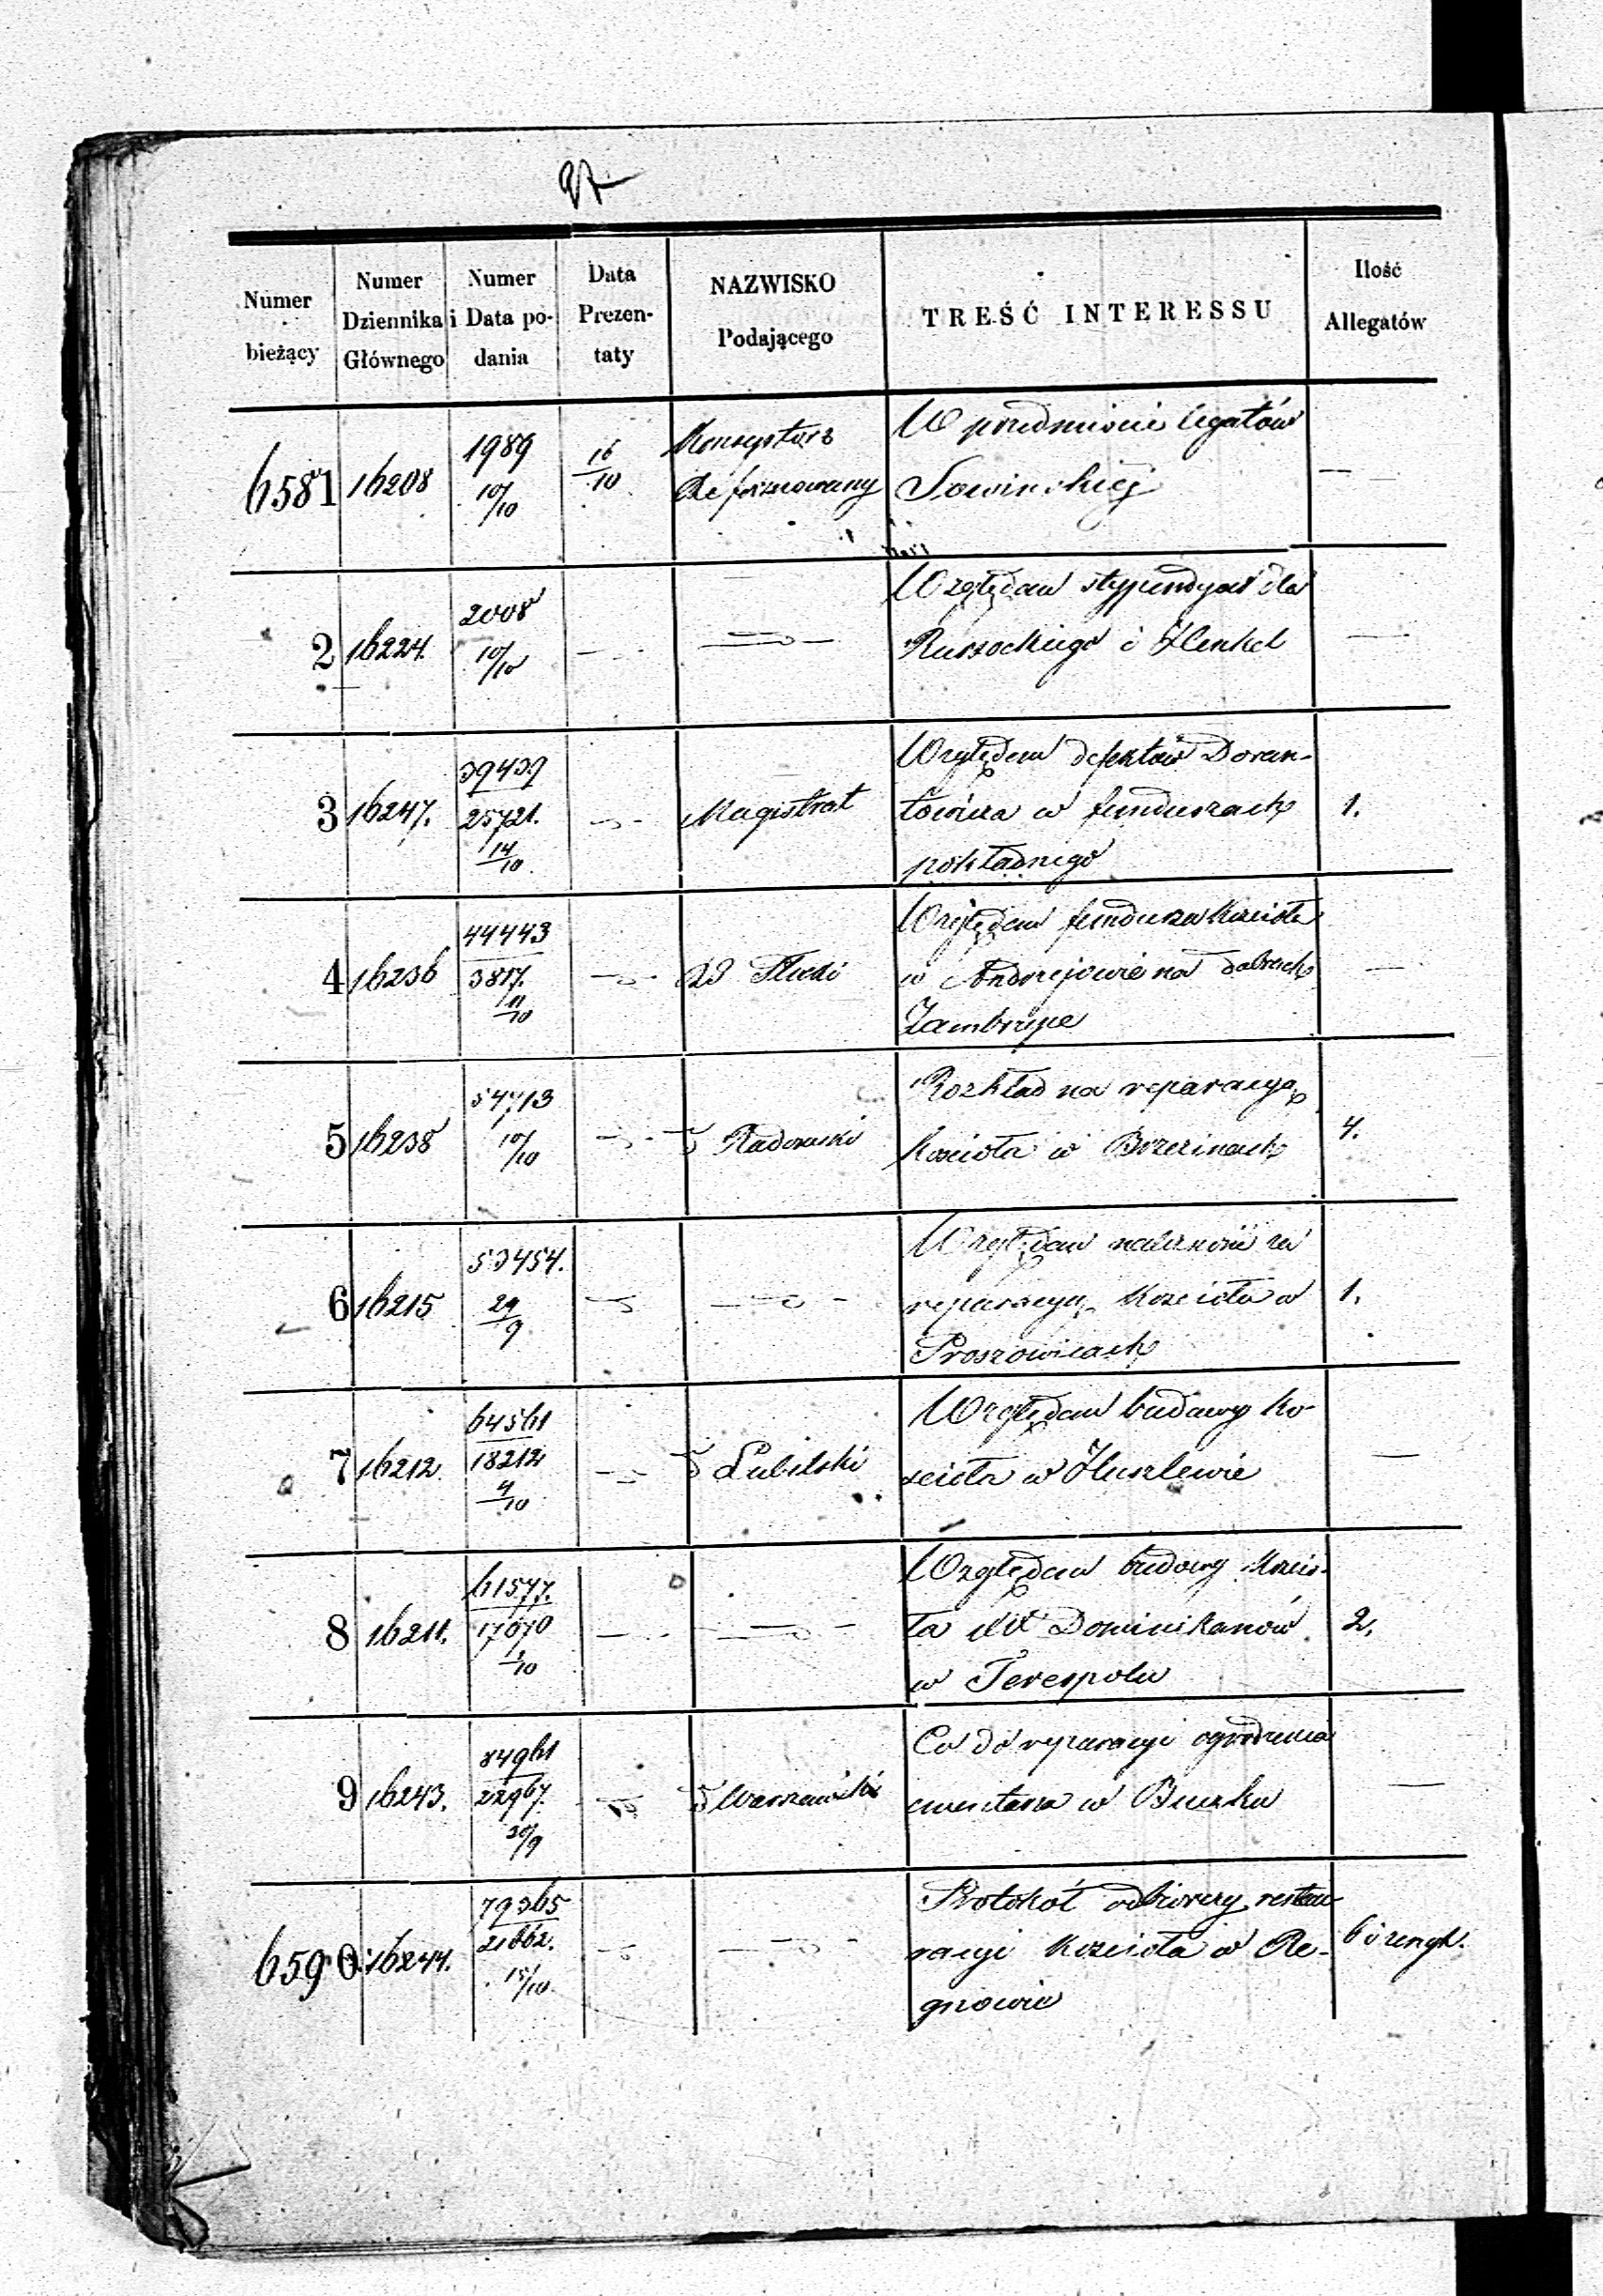 Numer bieżący
Numer Dziennika Głównego
Numer i Data podania
Data Prezentaty
NAZWISKO Podającego
TREŚĆ INTERESSU
Ilość Allegatów
6581 16208 1989 10/10 16/10 Konsystorz Reformowany W przedmiocie legatów
Sowinskiej —
2 16224. 2008 10/10 — — Względem stypendyów dla
Russockiego i Henkel —
3 16247. 39439 25721. 14/10 — Magistrat Względem defektów Doran-
towicza w funduszach 1.
pokładnego
4 16236 44443 3817. 11/10 — Względem funduszu kościoła
w Andrzejowie na dobrach —
Zambrzyce
5 16238 54713 10/10 — Radomski Rozkład na reparacyą
kościoła w Brzezinach 4.
6 16215 53454. 29/9 — — Względem należności za
reparacyą kościoła w 1.
Proszowicach
7 16212. 64561 18212 4/10 — Lubelski Względem budowy ko-
scioła w Huszlewie —
8 16211. 61577. 17670 1/10 — — Względem budowy kościo-
ła Dominikanów 2.
w Terespolu
9 16243. 84961 22967. 20/9 — Warszawski Co do reparacyi ogrodzenia
cmentarza w Buczku —
6590 16244. 79365 21662. 15/10 — — Protokół odbiorczy restau-
racyi kościoła w Re-
gnowie